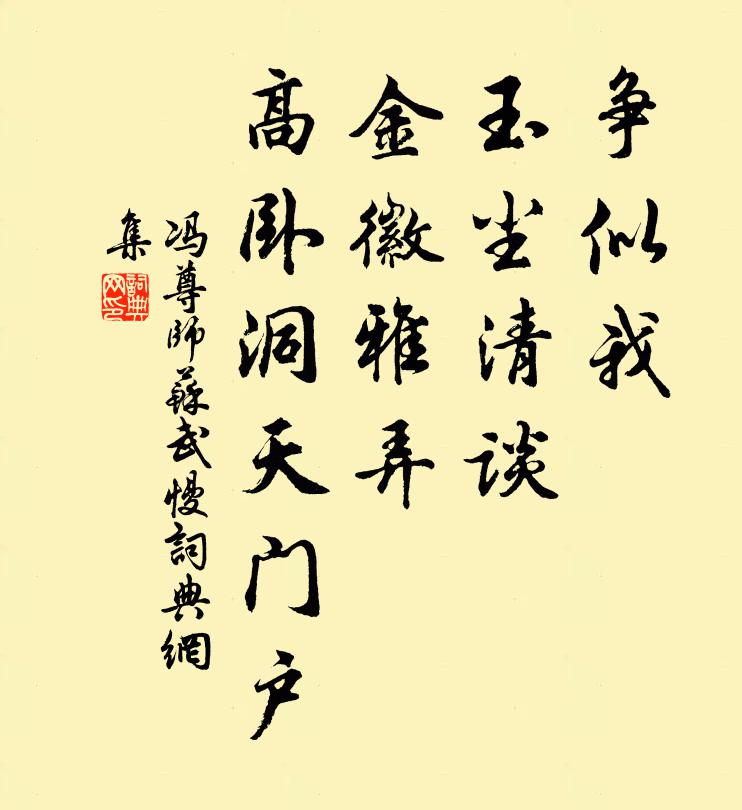 争似我
玉尘清谈
金徽雅弄
高卧洞天门户
冯尊师蘇武慢詞典網
集
詞典
网印